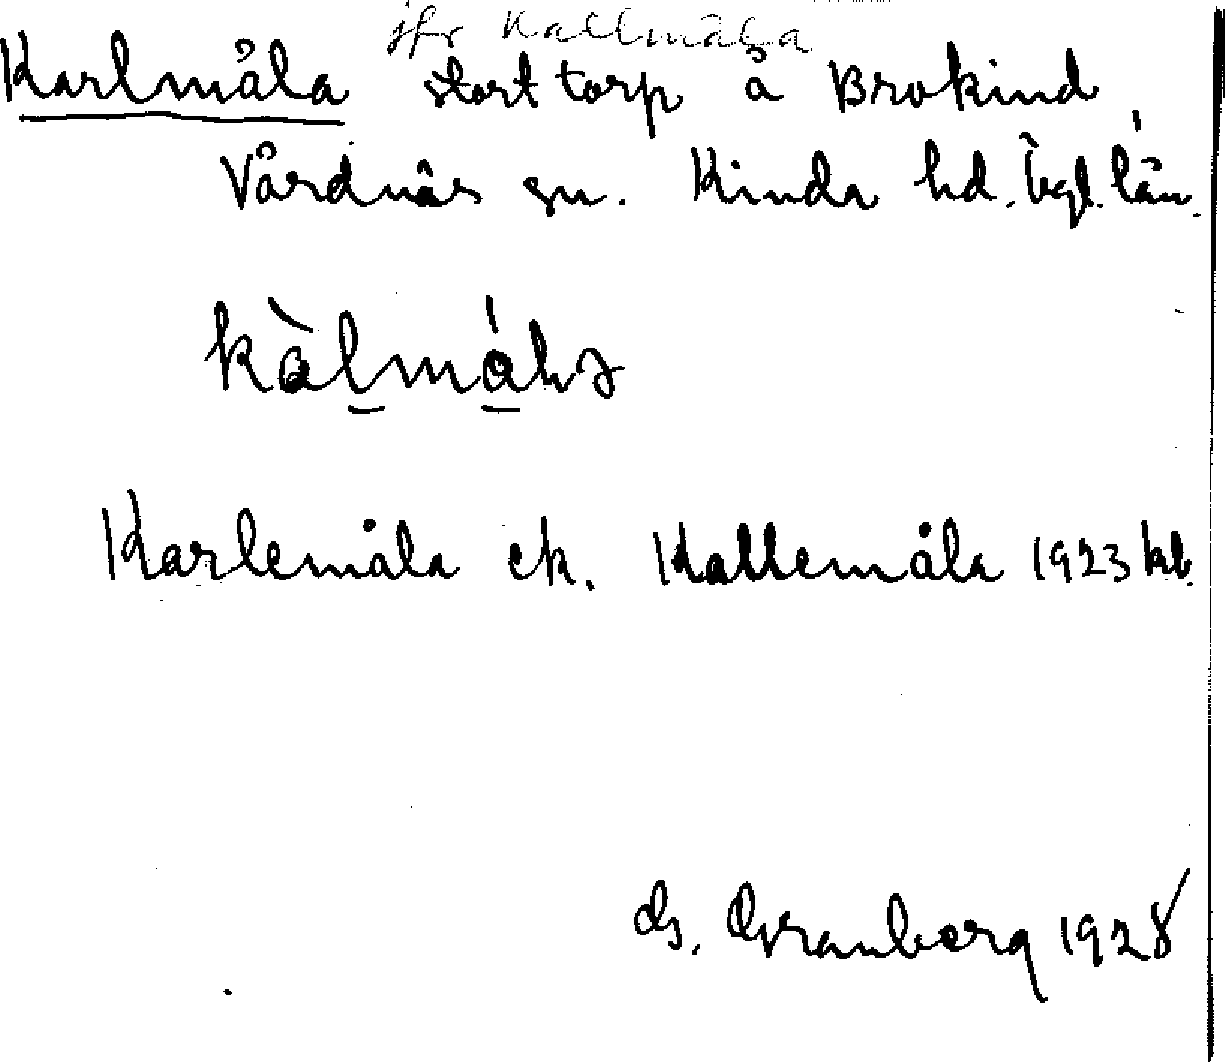 jfr Kallmåla
Karlmåla stort torp å Brokind
Vårdnäs sn. Kinda hd. Ögl. län.
Karlemåla ek. Kallemåla 1923 kb.
G. Granberg 1928